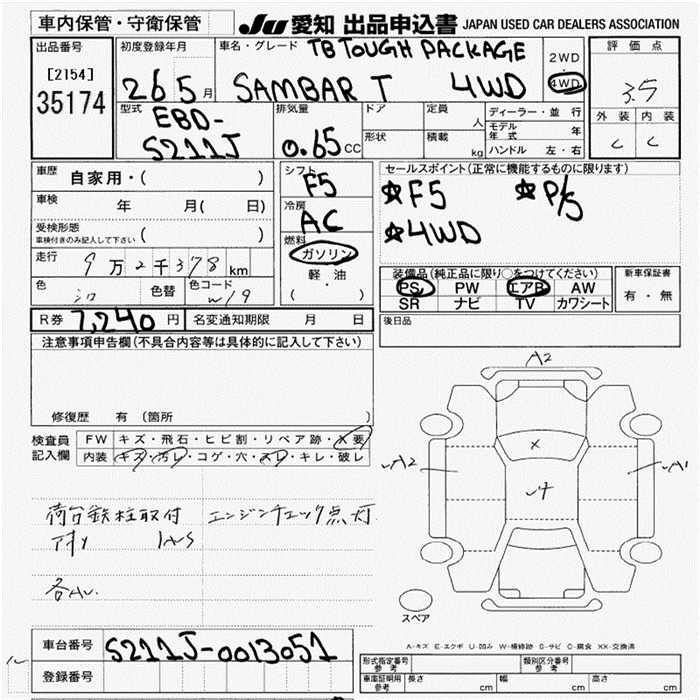 車内保管・守衛保管 JU 愛知 出品申込書 JAPAN USED CAR DEALERS ASSOCIATION
出品番号 初度登録年月 車名・グレード TB TOUGH PACKAGE 2WD 評価点
[2154] 26 5月 SAMBAR T 4WD ・ 3.5
35174 4WD 外装 内装
型式 排気量 ドア 定員 人 ディーラー・並行 C C
EBD- モデル年式 年
S211J 0.65cc 形状 積載 kg ハンドル 左・右
車歴 自家用・( ) シフト F5 セールスポイント(正常に機能するものに限ります)
車検 年 月( 日) 冷房 AC ★F5 ★P/S
受検形態 車検付きのみ記入して下さい ( ) 燃料 ★4WD
走行 9万2千378km ガソリン
軽・油
( ・ )
装備品(純正品に限り○をつけてください) 新車保証書
色 シロ 色替 色コード W19 PS PW エアB AW 有・無
SR ナビ TV カワシート
R券 7,240円 名変通知期限 月 日 後日品
注意事項申告欄(不具合内容等は具体的に記入して下さい)
修復歴 有 (箇所
検査員記入欄 FW キズ・飛石・ヒビ割・リペア跡・X要
内装 キズ・汚レ・コゲ・穴・スレ・キレ・破レ
荷台鉄柱取付 エンジンチェック点灯
A2
A2 X A1
スペア
A-キズ E-エクボ U-凹み W-補修跡 S-サビ C-腐食 XX-交換済
車台番号 S211J-0013051
登録番号
形式指定番号 参考 類別区分番号 参考
車庫証明用 参考 長さ cm 幅 cm 高さ cm